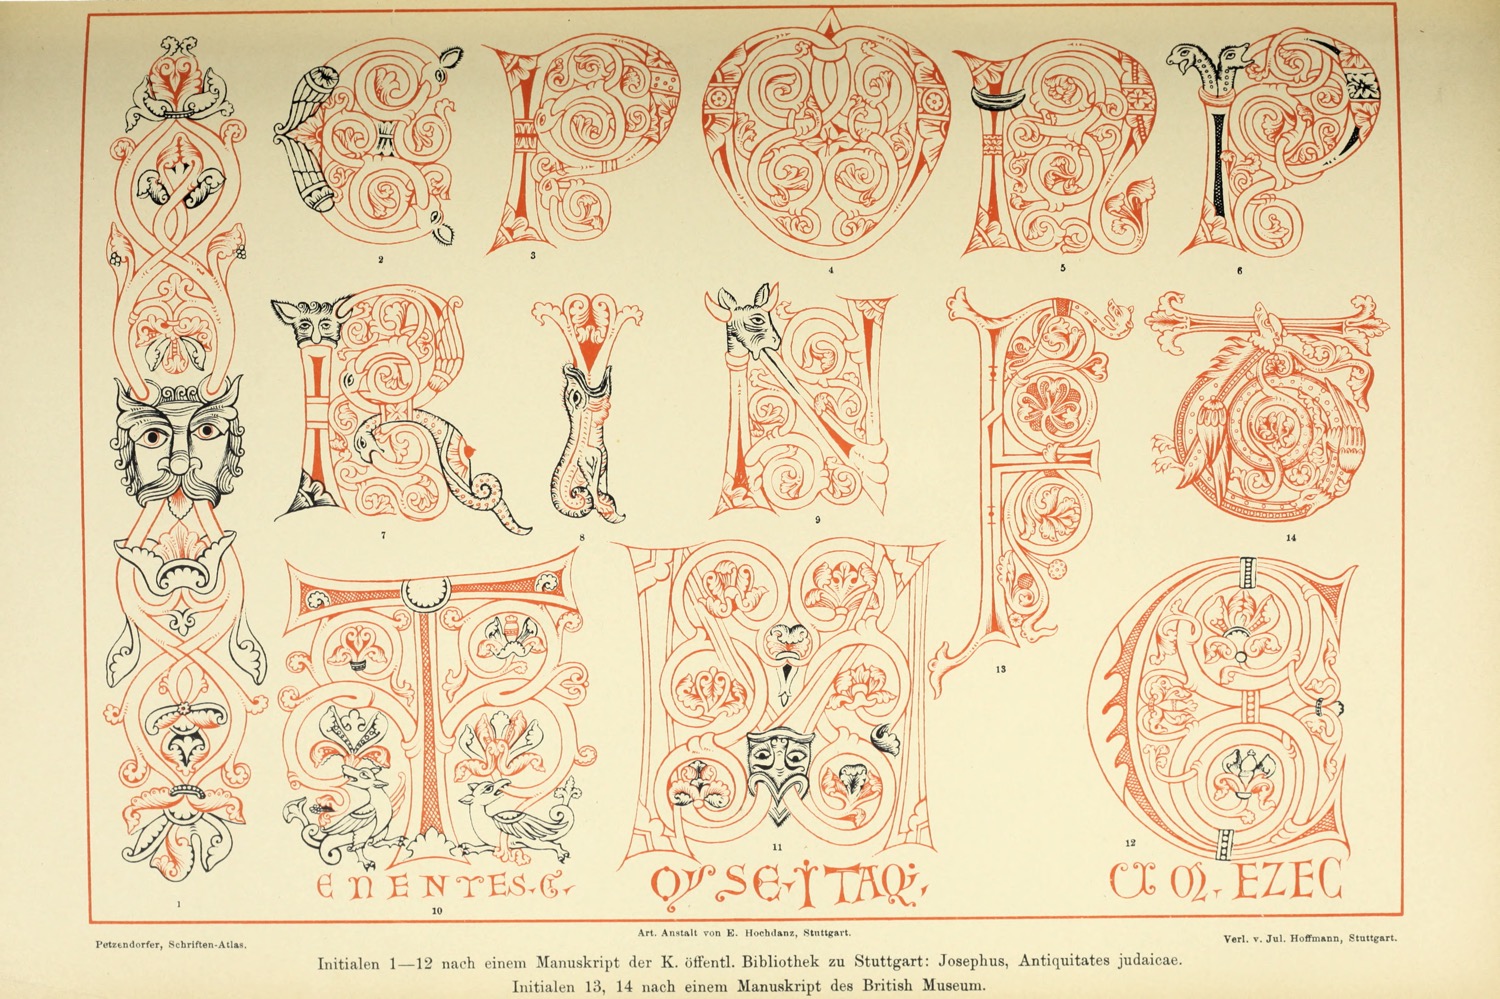 2 3 4 5 6
7 8 9 14
13
ENENTES·
10
11
12
EZEC
1
Petzendorfer, Schriften-Atlas.
Art. Anstalt von E. Hochdanz, Stuttgart.
Verl. v. Jul. Hoffmann, Stuttgart.
Initialen 1—12 nach einem Manuskript der K. öffentl. Bibliothek zu Stuttgart: Josephus, Antiquitates judaicae.
Initialen 13, 14 nach einem Manuskript des British Museum.